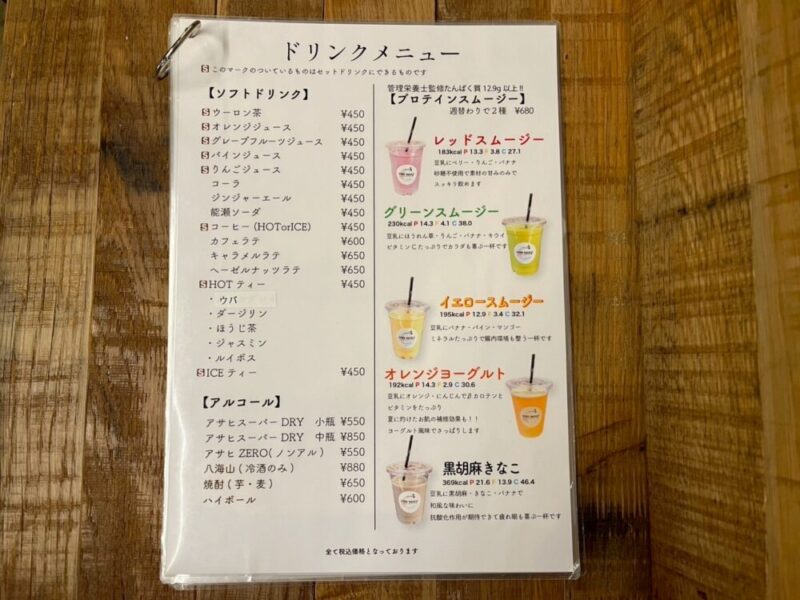 ドリンクメニュー
Sこのマークのついているものはセットドリンクにできるものです
【ソフトドリンク】
Sウーロン茶 ¥450
Sオレンジジュース ¥450
Sグレープフルーツジュース ¥450
Sパインジュース ¥450
Sりんごジュース ¥450
コーラ ¥450
ジンジャーエール ¥450
能瀬ソーダ ¥450
Sコーヒー(HOTorICE) ¥450
カフェラテ ¥600
キャラメルラテ ¥650
ヘーゼルナッツラテ ¥650
SHOTティー ¥450
・ウバ
・ダージリン
・ほうじ茶
・ジャスミン
・ルイボス
SICEティー ¥450
【アルコール】
アサヒスーパーDRY 小瓶 ¥550
アサヒスーパーDRY 中瓶 ¥850
アサヒZERO(ノンアル) ¥550
八海山(冷酒のみ) ¥880
焼酎(芋・麦) ¥650
ハイボール ¥600
管理栄養士監修たんぱく質12.9g以上!!
【プロテインスムージー】
週替わりで2種 ¥680
レッドスムージー
183kcal P 13.3 F 3.8 C 27.1
豆乳にベリー・りんご・バナナ
砂糖不使用で素材の甘みのみで
スッキリ飲めます
グリーンスムージー
230kcal P 14.3 F 4.1 C 38.0
豆乳にほうれん草・りんご・バナナ・キウイ
ビタミンCたっぷりでカラダも喜ぶ一杯です
イエロースムージー
195kcal P 12.9 F 3.4 C 32.1
豆乳にバナナ・パイン・マンゴー
ミネラルたっぷりで腸内環境も整う一杯です
オレンジヨーグルト
192kcal P 14.3 F 2.9 C 30.6
豆乳にオレンジ・にんじんでβカロテンと
ビタミンをたっぷり
夏に灼けたお肌の補修効果も!!
ヨーグルト風味でさっぱりします
黒胡麻きなこ
369kcal P 21.6 F 13.9 C 46.4
豆乳に黒胡麻・きなこ・バナナで
和風な味わいに
抗酸化作用が期待できて疲れ眼も喜ぶ一杯です
全て税込価格となっております